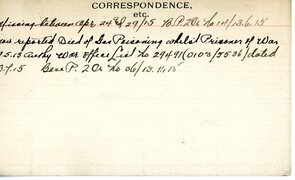 CORRESPONDENCE,
etc.
Missing between Apr 24 & 29/15 B.P. 2 Or No 10/13.6.15
now reported Died of Gas Poisoning whilst Prisoner of War
.5.15 Authy War Office List No 29491 (0103/5536) dated
.7.15 Base P. 2 Or No 36/13.11.15